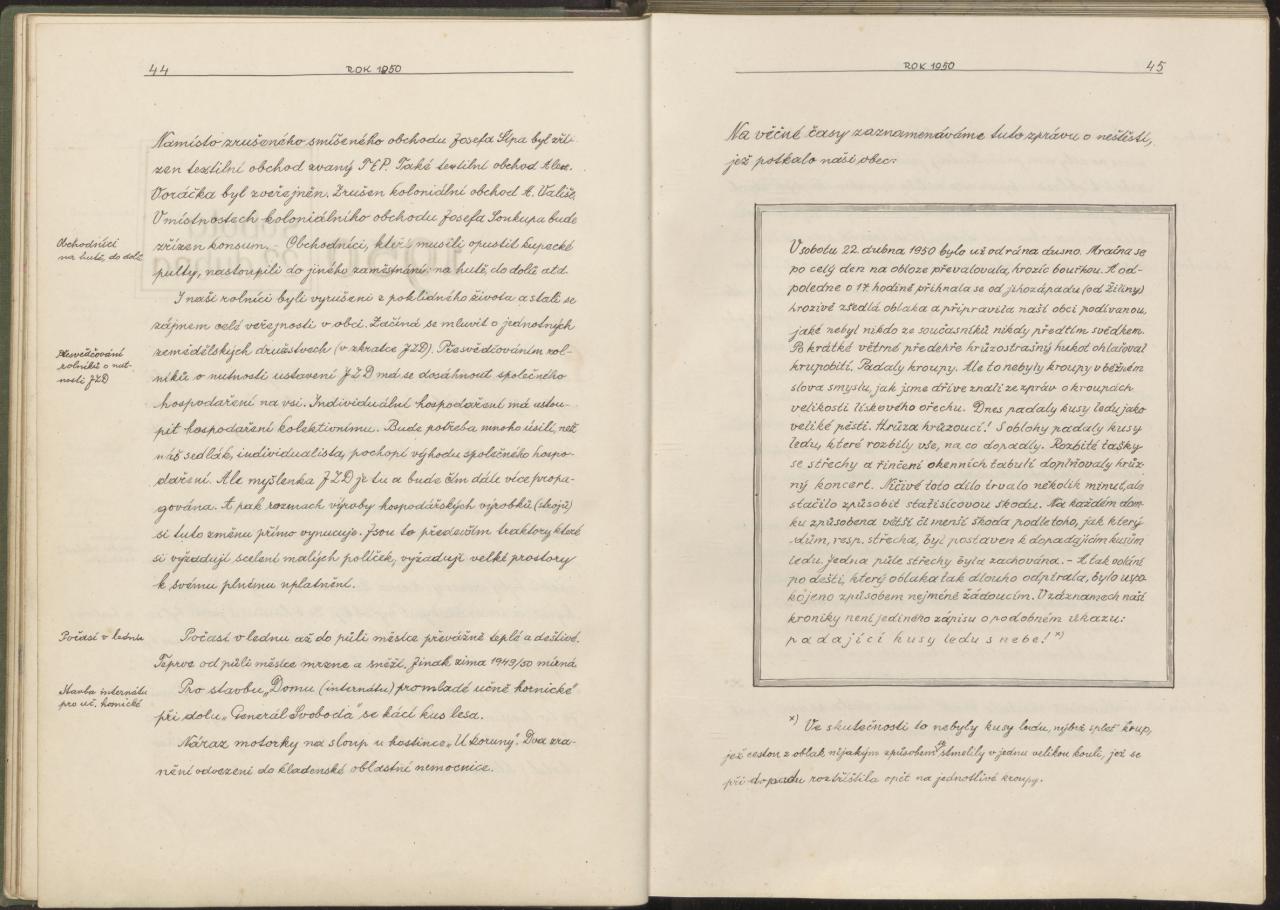 44
ROK 1950
Namísto zrušeného smíšeného obchodu Josefa Sýpa byl zří-
zen textilní obchod zvaný TEP. Také textilní obchod Alex.
Voráčka byl zveřejněn. Zrušen koloniální obchod A. Vališe.
V místnostech koloniálního obchodu Josefa Soukupa bude
zřízen konsum. – Obchodníci, kteří musili opustit kupecké
pulty, nastoupili do jiného zaměstnání: na hutě, do dolů atd.
Obchodníci
na hutě, do dolů
I naši rolníci byli vyrušeni z poklidného života a stali se
zájmem celé veřejnosti v obci. Začíná se mluvit o jednotných
zemědělských družstvech (v zkratce JZD). Přesvědčováním rol-
níků o nutnosti ustavení JZD má se dosáhnout společného
hospodaření na vsi. Individuální hospodaření má ustou-
pit hospodaření kolektivnímu. Bude potřeba mnoho úsilí, než
náš sedlák, individualista, pochopí výhodu společného hospo-
daření. Ale myšlenka JZD je tu a bude čím dále více propa-
gována. A pak rozmach výroby hospodářských výrobků (strojů)
si tuto změnu přímo vynucuje. Jsou to především traktory které
si vyžadují scelení malých políček, vyžadují velké prostory
k svému plnému uplatnění.
Přesvědčování
rolníků o nut-
nosti JZD
Počasí v lednu
Počasí v lednu až do půli měsíce převážně teplé a deštivé.
Teprve od půli měsíce mrzne a sněží. Jinak zima 1949/50 mírná
Stavba internátu
pro uč. hornické
Pro stavbu „Domu (internátu) pro mladé učně hornické"
při dolu „Generál Svoboda" se kácí kus lesa.
Náraz motorky na sloup u hostince „U koruny". Dva zra-
nění odvezeni do kladenské oblastní nemocnice.
ROK 1950
45
Na věčné časy zaznamenáváme tuto zprávu o neštěstí,
jež potkalo naši obec:
V sobotu 22. dubna 1950 bylo už od rána dusno. Mračna se
po celý den na obloze převalovala, hrozíc bouřkou. A od-
poledne o 17 hodině přihnala se od jihozápadu (od Žiliny)
hrozivě zšedlá oblaka a připravila naší obci podívanou,
jaké nebyl nikdo ze současníků nikdy předtím svědkem.
Po krátké větrné předehře hrůzostrašný hukot ohlašoval
krupobití. Padaly kroupy. Ale to nebyly kroupy v běžném
slova smyslu, jak jsme dříve znali ze zpráv o kroupách
velikosti lískového ořechu. Dnes padaly kusy ledu jako
veliké pěsti. Hrůza hrůzoucí! S oblohy padaly kusy
ledu, které rozbily vše, na co dopadly. Rozbité tašky
se střechy a řinčení okenních tabulí doplňovaly hrůz-
ný koncert. Ničivé toto dílo trvalo několik minut, ale
stačilo způsobit statisícovou škodu. Na každém dom-
ku způsobena větší či menší škoda podle toho, jak který
dům, resp. střecha, byl postaven k dopadajícím kusům
ledu. Jedna půle střechy byla zachována. – A tak volání
po dešti, který oblaka tak dlouho odpírala, bylo uspo-
kojeno způsobem nejméně žádoucím. V záznamech naší
kroniky není jediného zápisu o podobném úkazu:
padající kusy ledu s nebe! x)
x) Ve skutečnosti to nebyly kusy ledu, nýbrž spleť krup,
jež cestou z oblak nějakým způsobem se stmelily v jednu velikou kouli, jež se
při dopadu roztříštila opět na jednotlivé kroupy.